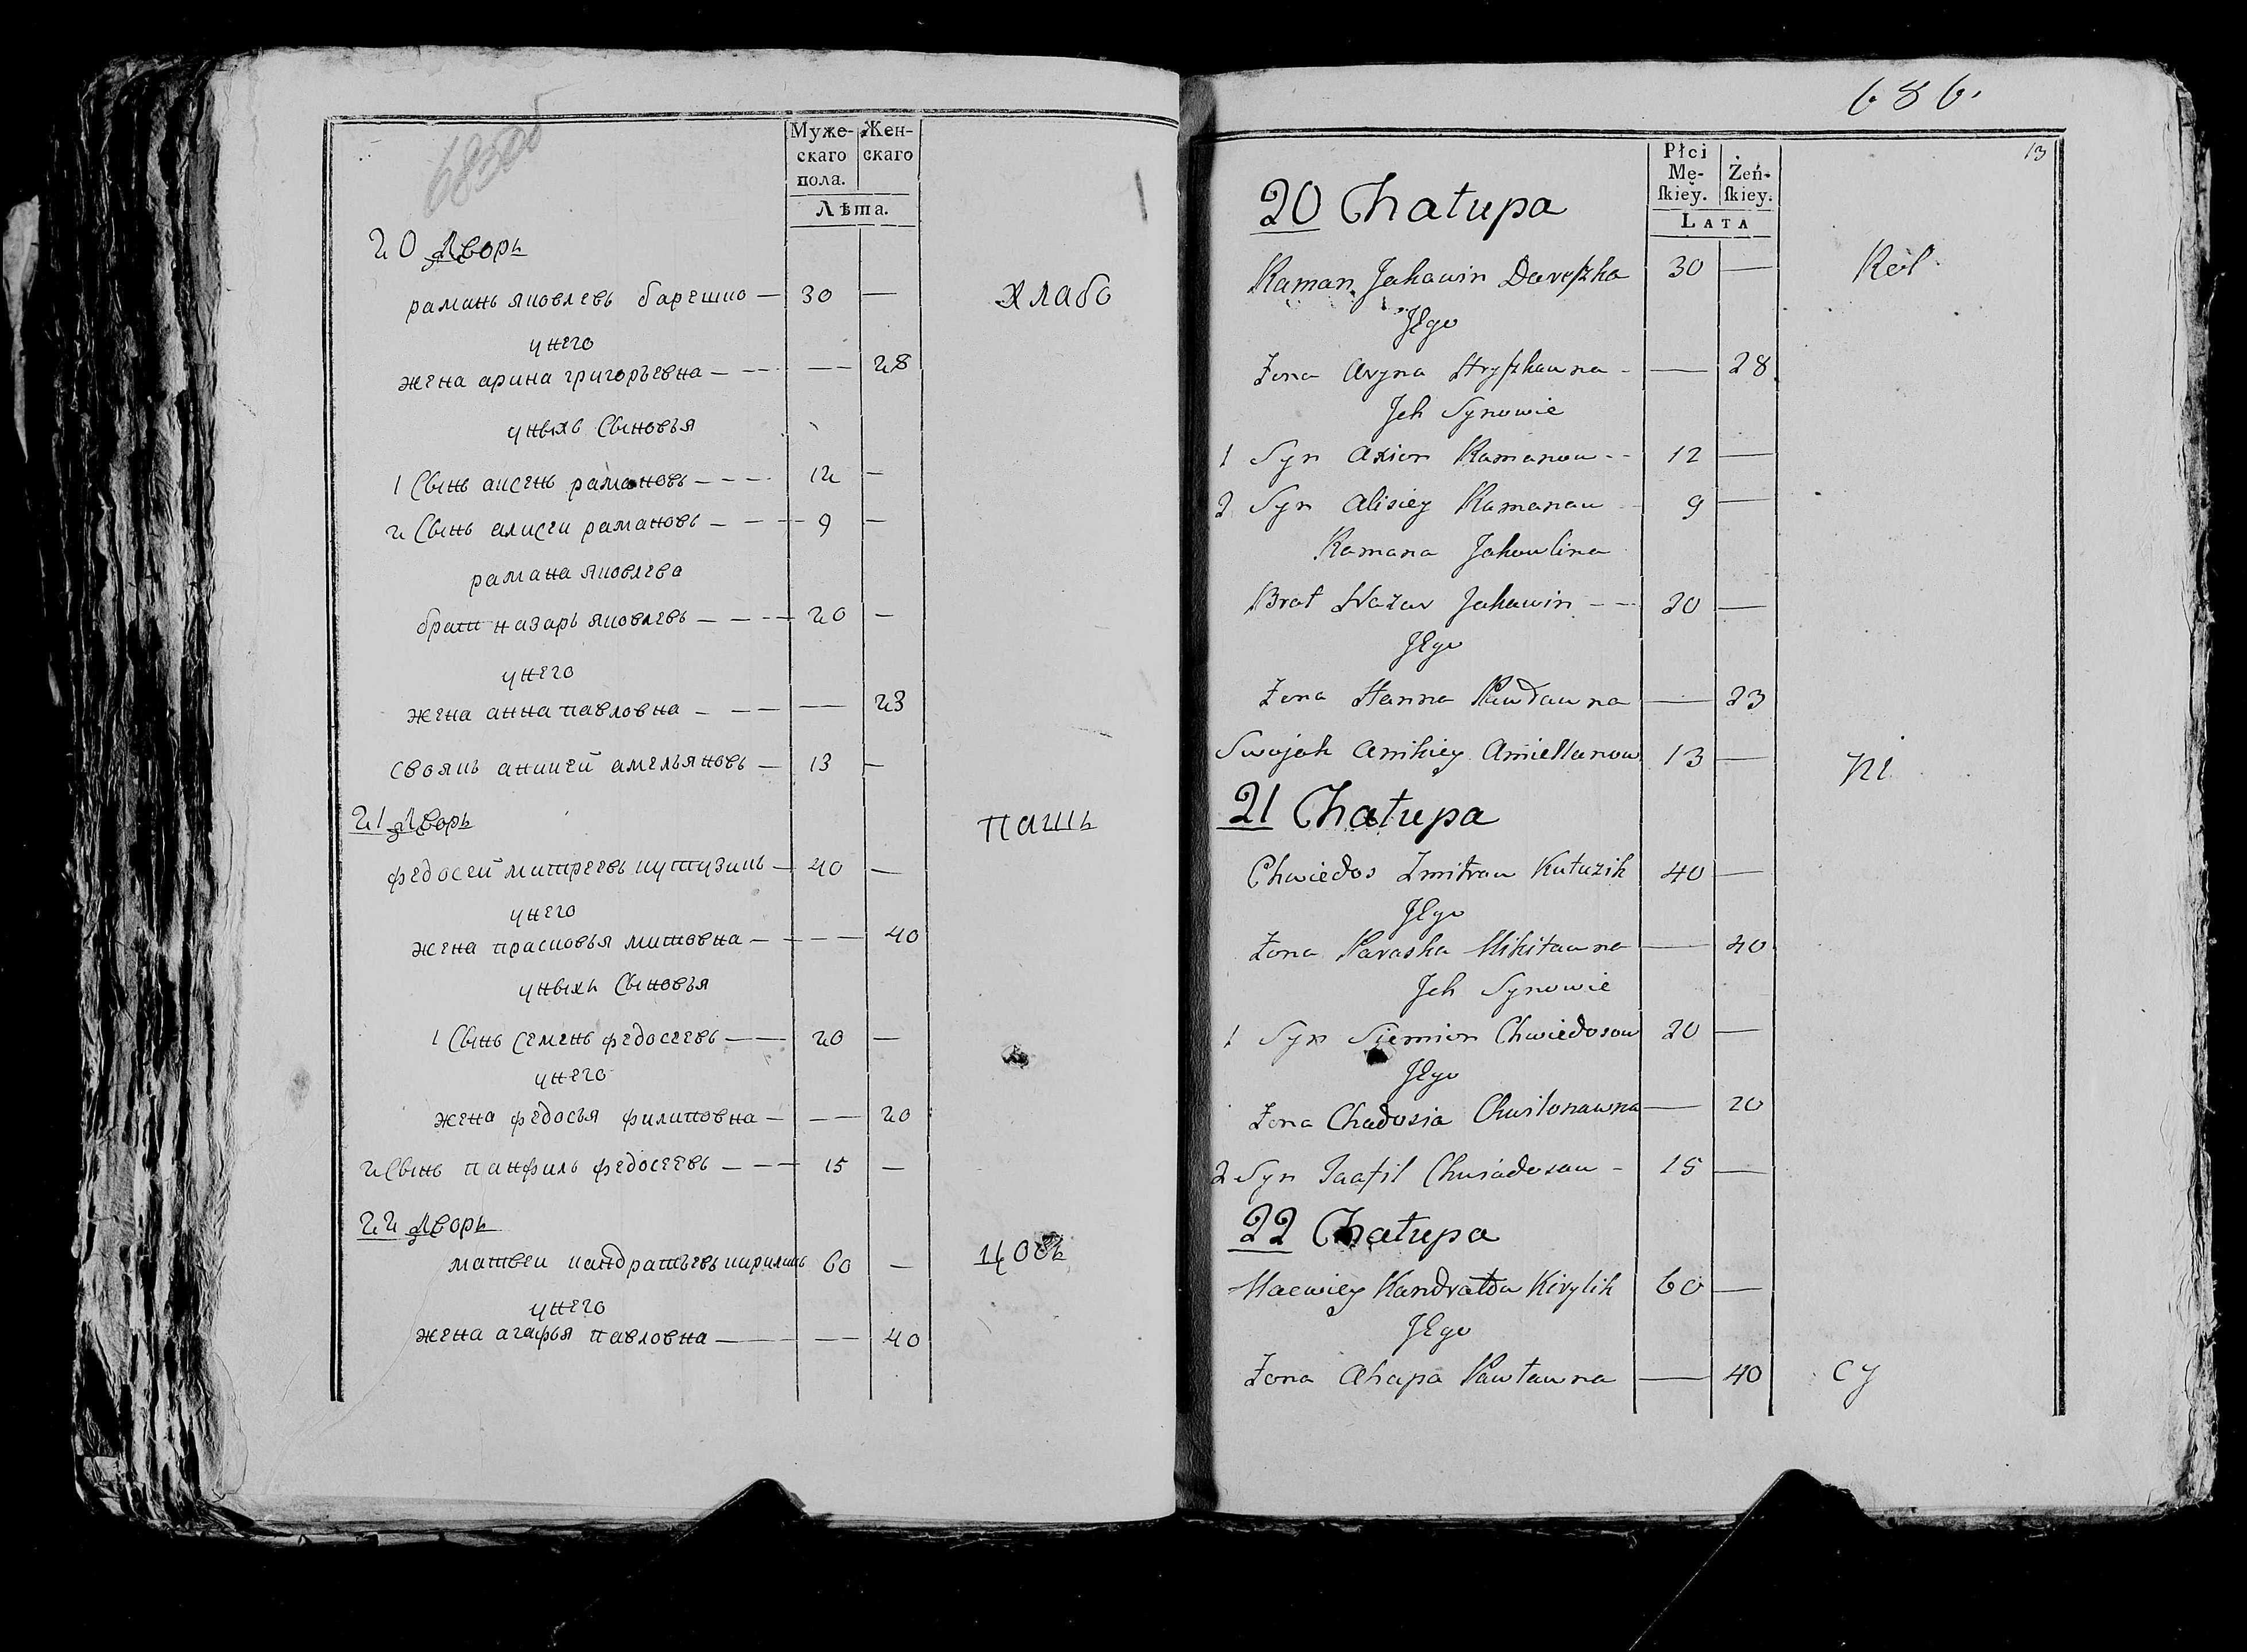 685об
Муже- Жен-
скаго скаго
пола.
Лѣта.
20 Дворъ
раманъ яковлевъ барешко — 30 —
унего
жена арина григорьевна — — 28
хлабо
уныхъ Сыновья
1 Сынъ аксенъ рамановъ — 12 —
2 Сынъ алисеи рамановъ — 9 —
рамана яковлева
братъ назаръ яковлевъ — 20 —
унего
жена анна павловна — — 23
своякъ аникей амельяновъ — 13 —
21 Дворъ
пашъ
федосей митреевъ кутузикъ — 40 —
унего
жена прасковья митовна — — 40
уныхъ Сыновья
1 Сынъ семенъ федосеевъ — 20 —
унего
жена федосья филиповна — — 20
2 Сынъ панфилъ федосеевъ — 15 —
22 Дворъ
матвеи кандратьевъ кириликъ 60 —
унего
жена агафья павловна — — 40
686.
13
Płci
Mę- Żeń-
skiey. skiey.
LATA
20 Chałupa
Raman Jakawin Dareszka 30 —
Jego
Żona Aryna Hryszkawna — 28
Jch Synowie
1 Syn Axion Ramanow 12 —
2 Syn Alisiey Ramanau 9 —
Ramana Jakowlina
Brat Nazar Jakawin 20 —
Jego
Żona Hanna Pawławna — 23
Swojak Anikiey Amiellanow 13 —
ni
21 Chałupa
Chwiedos Zmitrau Kutuzik 40 —
Jego
Żona Paraska Mikitawna — 40
Jch Synowie
1 Syn Siemion Chwiedosow 20 —
Jego
Żona Chadosia Chwilonawna — 20
2 Syn Chwiadosau 15 —
22 Chałupa
Maewiey Kandratow Kirylik 60 —
Jego
Żona Ahapa Pawławna — 40
cy